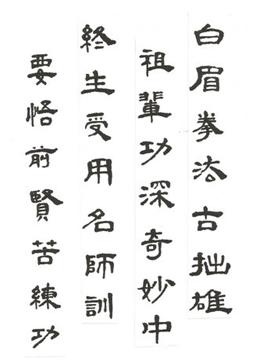 白眉拳法古拙雄
祖輩功深奇妙中
終生受用名師訓
要悟前賢苦練功